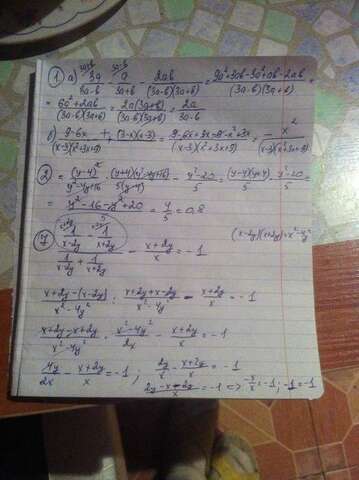 3a+b 3a-b
① а) 3a/(3a-b) - a/(3a+b) - 2ab/((3a-b)(3a+b)) = (9a²+3ab-3a²+ab-2ab)/((3a-b)(3a+b)) =
= (6a²+2ab)/((3a-b)(3a+b)) = 2a(3a+b)/((3a-b)(3a+b)) = 2a/(3a-b)
б) (9-6x)/((x-3)(x²+3x+9)) + (3-x)(x-3)/((x-3)(x²+3x+9)) = (9-6x+3x-9-x²+3x)/((x-3)(x²+3x+9)) = -x²/((x-3)(x²+3x+9))
② = (y-4)²/(y²-4y+16) · (y+4)(y²-4y+16)/(5(y-4)) - (y²-20)/5 = (y-4)(y+4)/5 - (y²-20)/5 =
= (y²-16-y²+20)/5 = 4/5 = 0,8
⑦ (1/(x-2y) - 1/(x+2y))/(1/(x-2y) + 1/(x+2y)) - (x+2y)/x = -1 (x-2y)(x+2y)=x²-4y²
(x+2y-(x-2y))/(x²-4y²) : (x+2y+x-2y)/(x²-4y²) - (x+2y)/x = -1
(x+2y-x+2y)/(x²-4y²) · (x²-4y²)/2x - (x+2y)/x = -1
4y/2x - (x+2y)/x = -1 ; 2y/x - (x+2y)/x = -1
(2y-x-2y)/x = -1 <=> -x/x = -1 ; -1 = -1